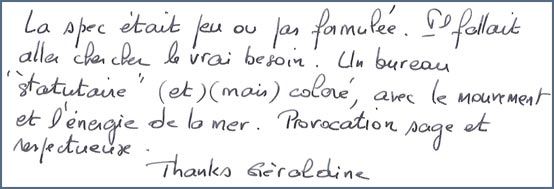 La spec était peu ou pas formulée. Il fallait
aller chercher le vrai besoin. Un bureau
"statutaire" (et)(mais) coloré, avec le mouvement
et l'énergie de la mer. Provocation sage et
respectueuse.
Thanks Géraldine